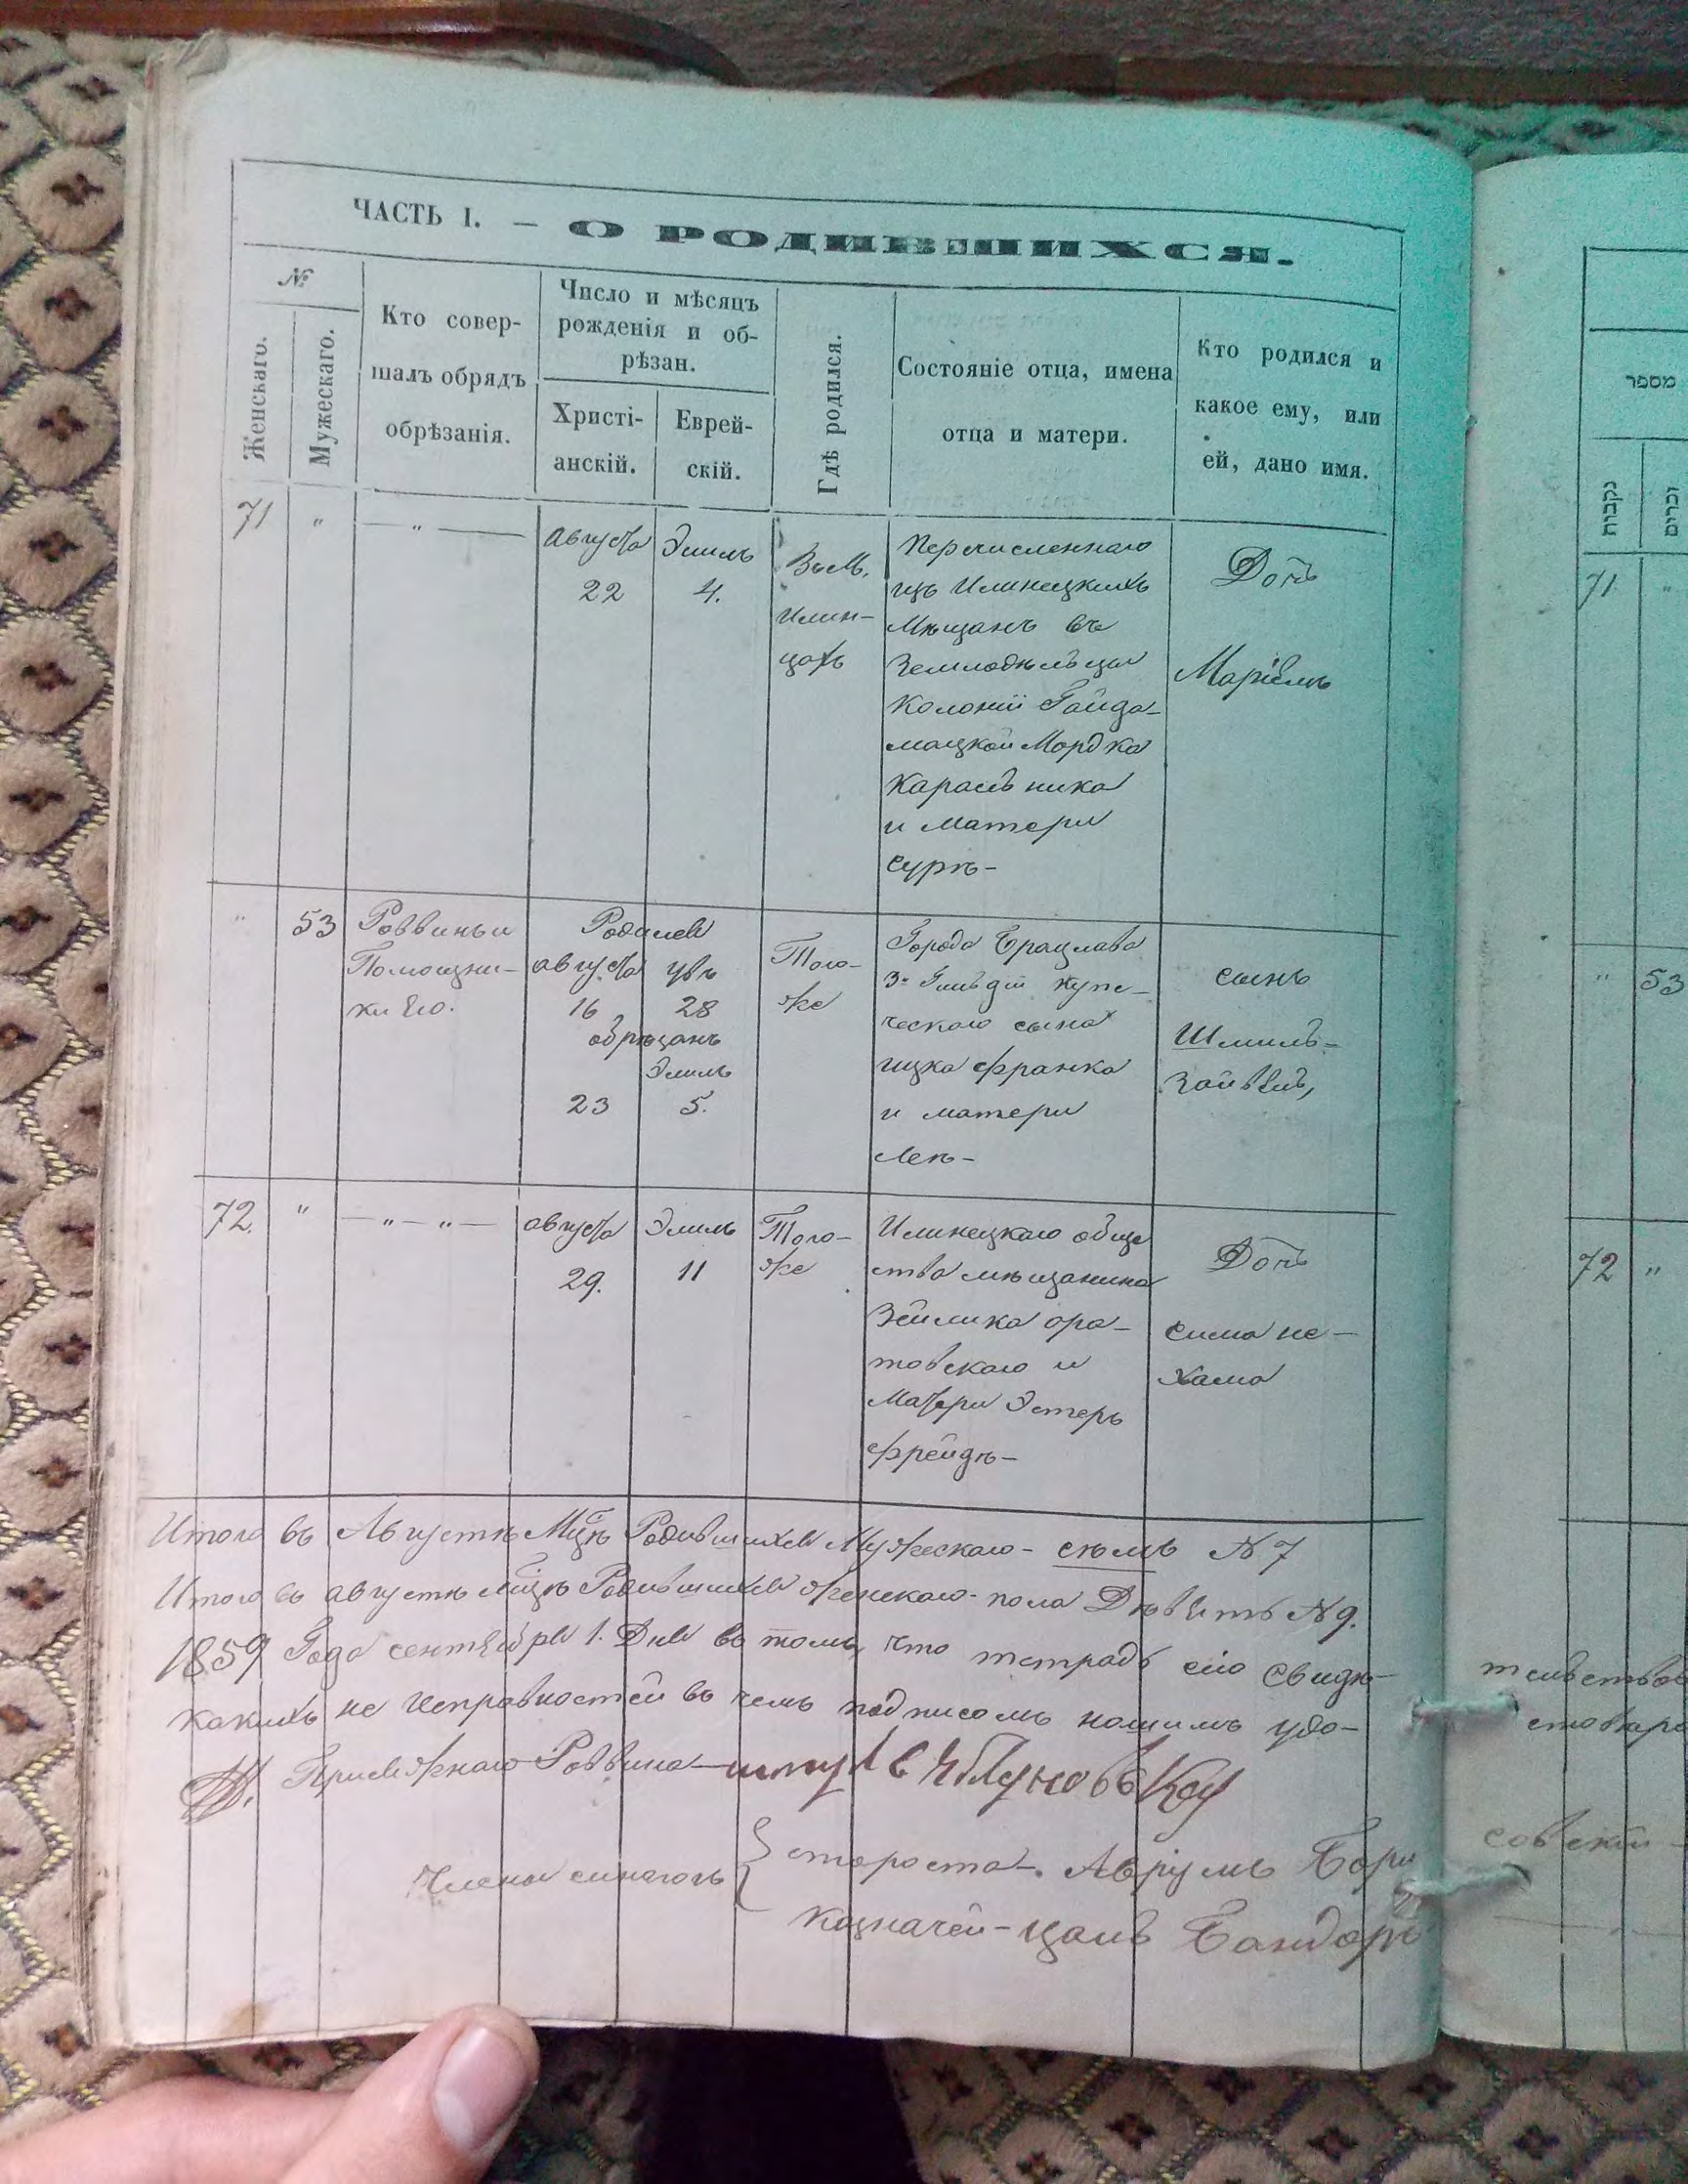 ЧАСТЬ I. — О РОДИВШИХСЯ.
№
Женскаго.
Мужескаго.
Кто совер-
шалъ обрядъ
обрѣзанія.
Число и мѣсяцъ
рожденія и об-
рѣзан.
Христі-
анскій.
Еврей-
скій.
Гдѣ родился.
Состояніе отца, имена
отца и матери.
Кто родился и
какое ему, или
ей, дано имя.
71 " — " —
августа
22
Элиль
4.
Въ М.
Илин-
цахъ
Перечисленнаго
изъ Илинецкихъ
Мѣщанъ въ
Земледѣльцы
Колоніи Гайда-
мацкой Мордка
Карасьника
и Матери
Суръ-
Дочь
Маріемъ
" 53
Раввинъ и
Помощни-
ки Его.
Родился
августа
16
увъ
28
обрѣзанъ
Элиль
23 5.
Того-
же
Города Брацлава
3й Гильдіи купе-
ческаго сына
ицка франка
и матери
Леѣ-
сынъ
Шмиль-
Зайвель,
72. " — " — " —
августа
29.
Элиль
11
Того-
же
Илинецкаго обще
ства мѣщанина
Зейлика ора-
товскаго и
Матери Эстеръ
фрейдѣ-
Дочь
сима не-
хама
Итого въ Августѣ Мцѣ Родившихся Мужескаго - сѣмь N 7
Итого въ августѣ мцѣ Родившихся женскаго - пола Дѣвять N 9.
1859 Года сентября 1. Дня въ томъ, что тетрадь сію Свидѣ-
какихъ не исправностей въ чемъ подписомъ нашимъ удо-
Присяжнаго Раввина
Члены синагогъ
староста -. Аврумъ
казначей -
מספר
נקבות
זכרים
71 "
" 53
72 "